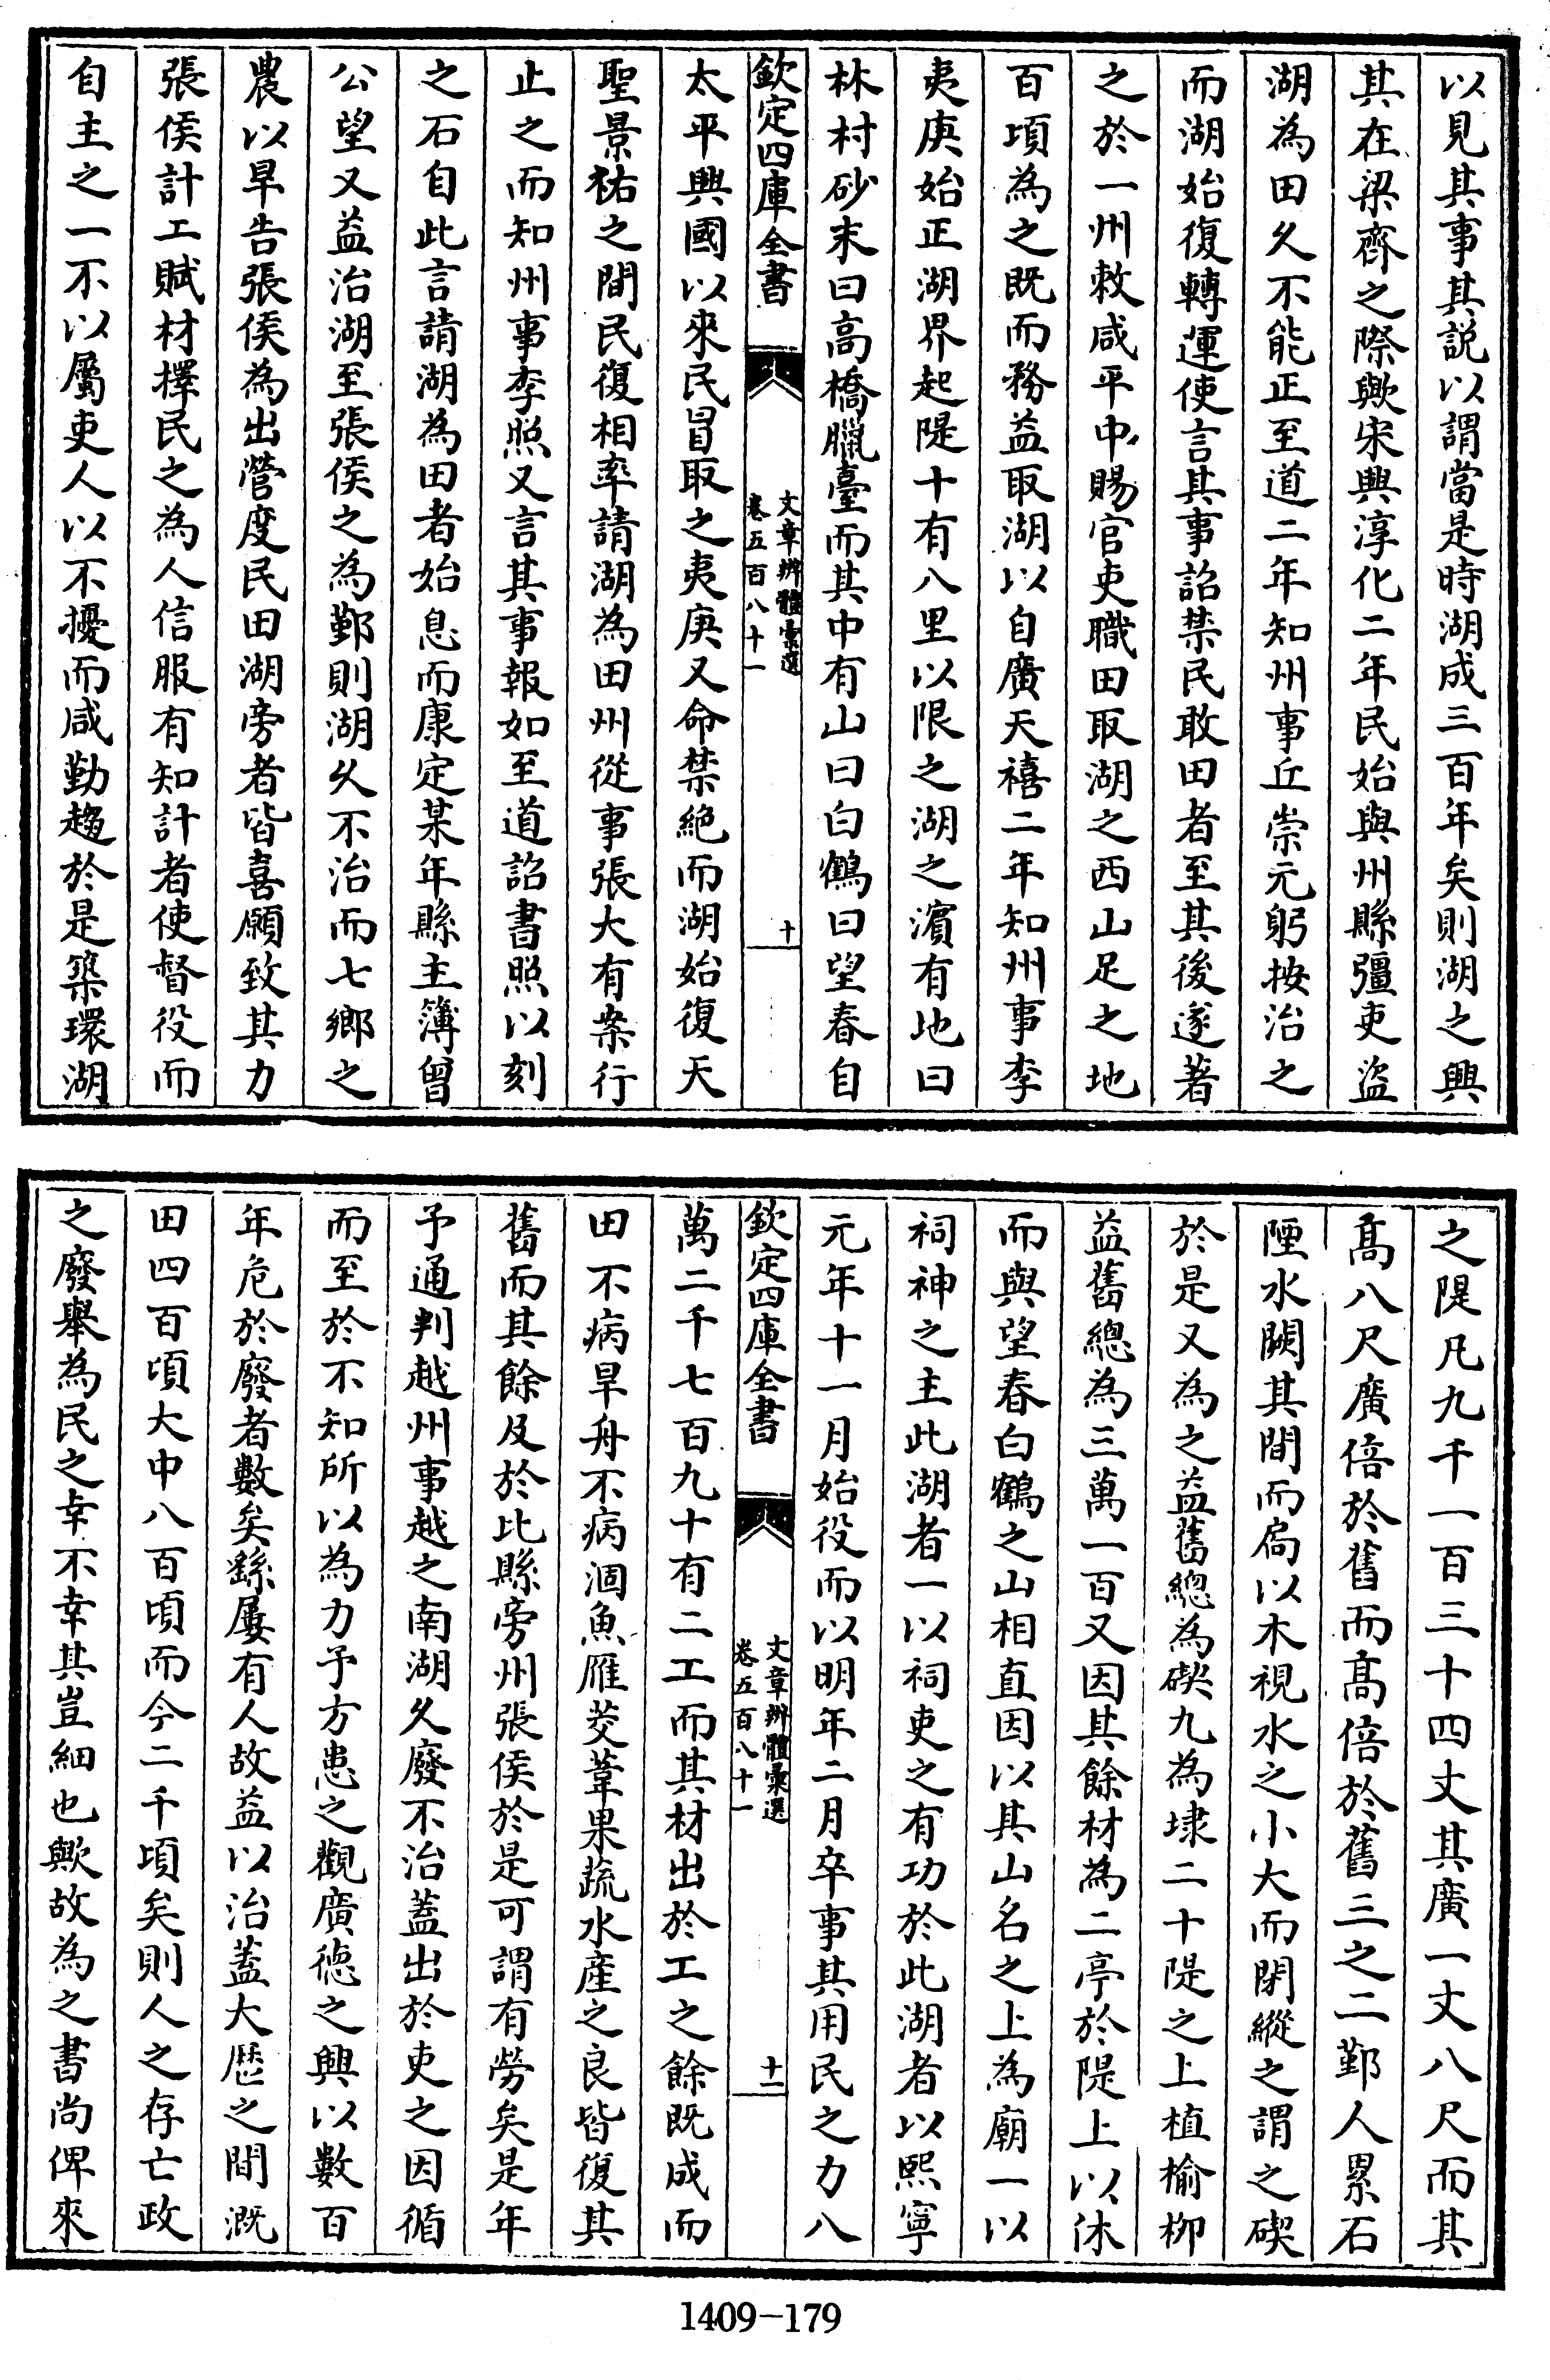 以見其事其説以謂當是時湖成三百年矣則湖之興
其在梁齊之際歟宋興淳化二年民始與州縣彊吏盜
湖為田久不能正至道二年知州事丘崇元躬按治之
而湖始復轉運使言其事詔禁民敢田者至其後遂著
之於一州敕咸平中賜官吏職田取湖之西山足之地
百頃為之既而務益取湖以自廣天禧二年知州事李
夷庚始正湖界起隄十有八里以限之湖之濱有地曰
林村砂末曰高橋臘臺而其中有山曰白鶴曰望春自
欽定四庫全書
文章辨體彙選
卷五百八十一
十
太平興國以來民冒取之夷庚又命禁絶而湖始復天
聖景祐之間民復相率請湖為田州從事張大有案行
止之而知州事李照又言其事報如至道詔書照以刻
之石自此言請湖為田者始息而康定某年縣主簿曾
公望又益治湖至張侯之為鄞則湖久不治而七鄉之
農以旱告張侯為出營度民田湖旁者皆喜願致其力
張侯計工賦材擇民之為人信服有知計者使督役而
自主之一不以屬吏人以不擾而咸勤趨於是築環湖
之隄凡九千一百三十四丈其廣一丈八尺而其
高八尺廣倍於舊而高倍於舊三之二鄞人累石
陻水闕其間而扃以木視水之小大而閉縱之謂之碶
於是又為之益舊總為碶九為埭二十隄之上植榆柳
益舊總為三萬一百又因其餘材為二亭於隄上以休
而與望春白鶴之山相直因以其山名之上為廟一以
祠神之主此湖者一以祠吏之有功於此湖者以熙寧
元年十一月始役而以明年二月卒事其用民之力八
欽定四庫全書
文章辨體彙選
卷五百八十一
十一
萬二千七百九十有二工而其材出於工之餘既成而
田不病旱舟不病涸魚雁茭葦果蔬水産之良皆復其
舊而其餘及於比縣旁州張侯於是可謂有勞矣是年
予通判越州事越之南湖久廢不治蓋出於吏之因循
而至於不知所以為力予方患之觀廣德之興以數百
年危於廢者數矣繇屢有人故益以治蓋大歷之間溉
田四百頃大中八百頃而今二千頃矣則人之存亡政
之廢舉為民之幸不幸其豈細也歟故為之書尚俾來
1409-179